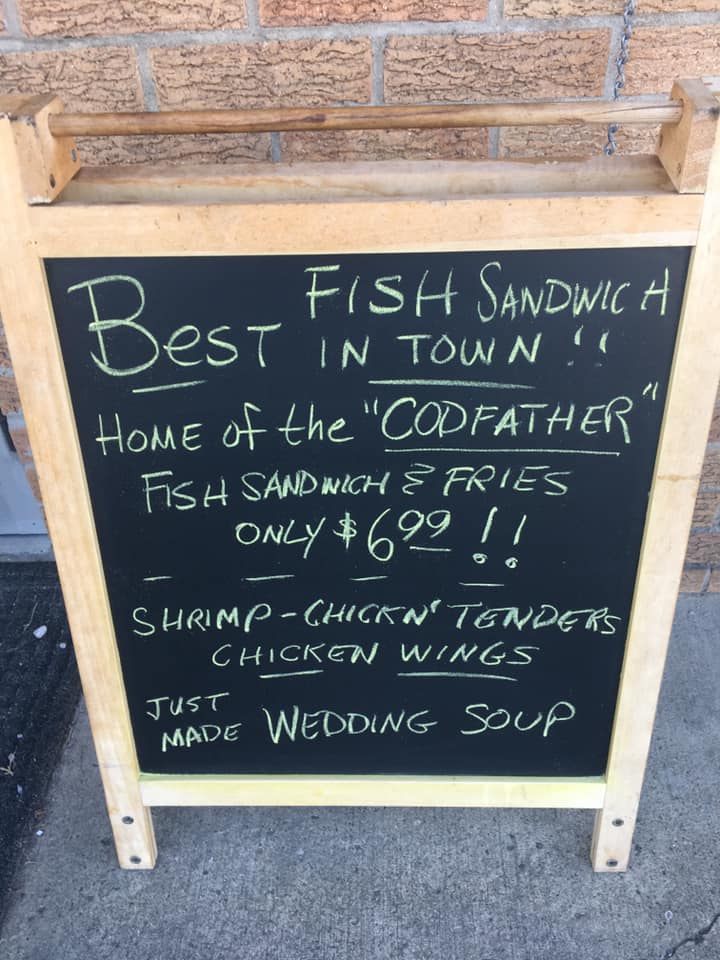 BesT FISH SANDWICH
IN TOWN !!
HOME of the "CODFATHER"
FISH SANDWICH & FRIES
ONLY $6.99 !!
SHRIMP - CHICKN' TENDERS
CHICKEN WINGS
JUST
MADE WEDDING SOUP